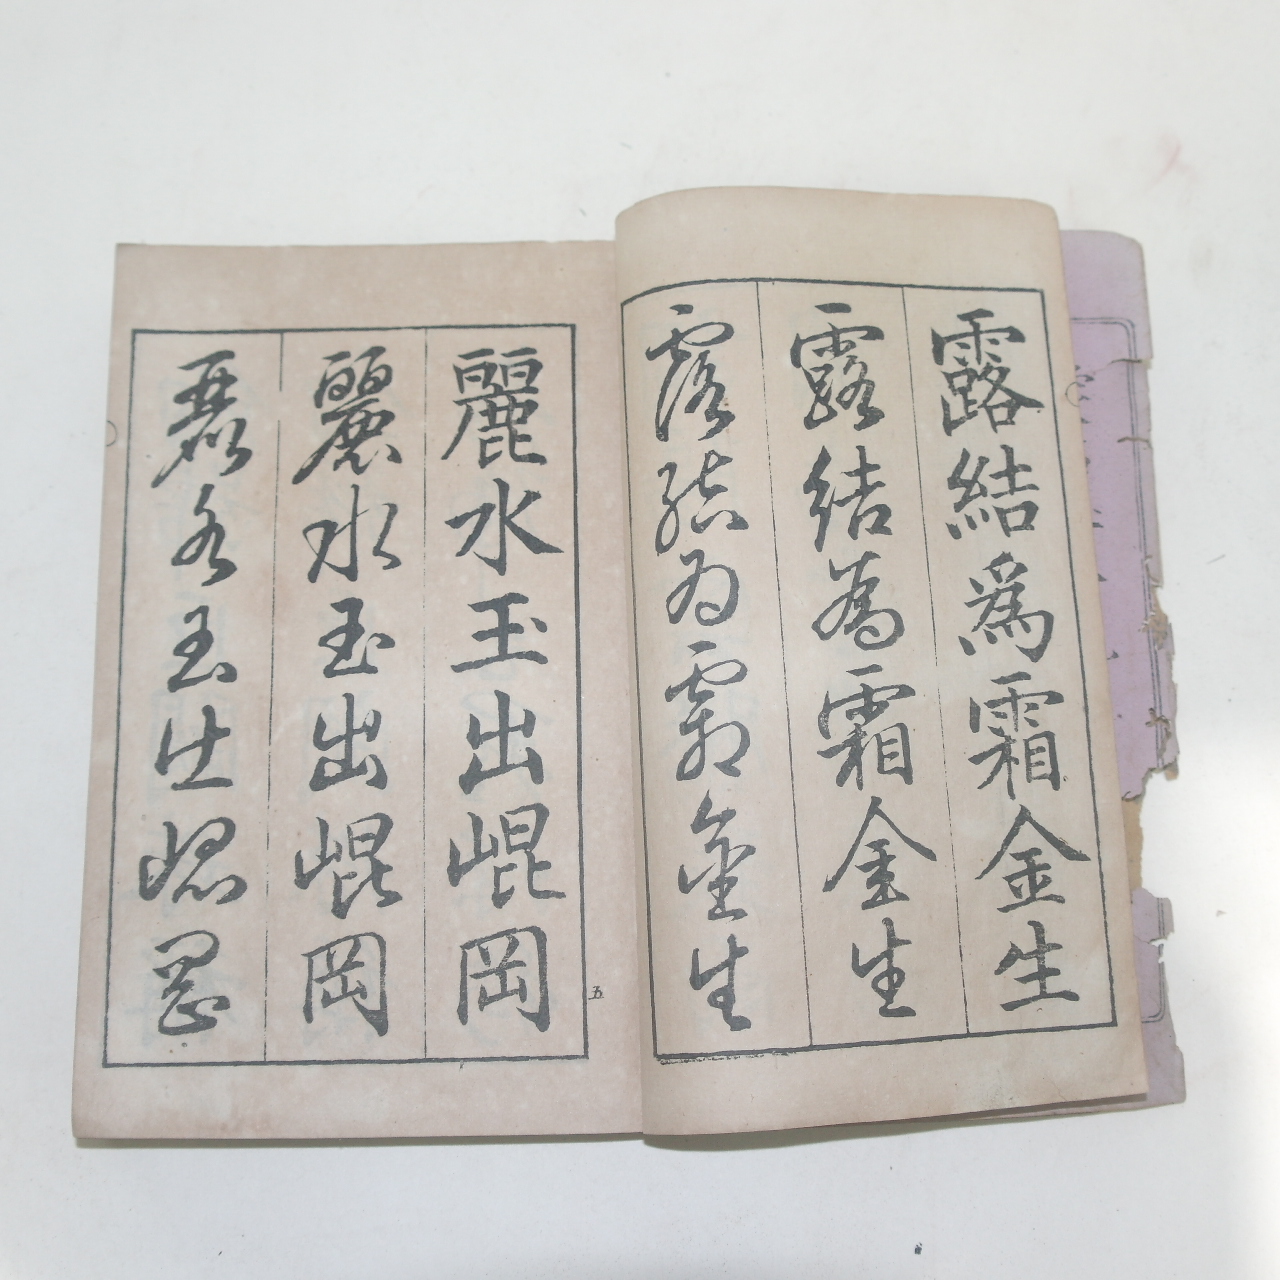 露結為霜金生
露結為霜金生
露結為霜金生
麗水玉出崐岡
麗水玉出崐岡
麗水玉出崐岡
五